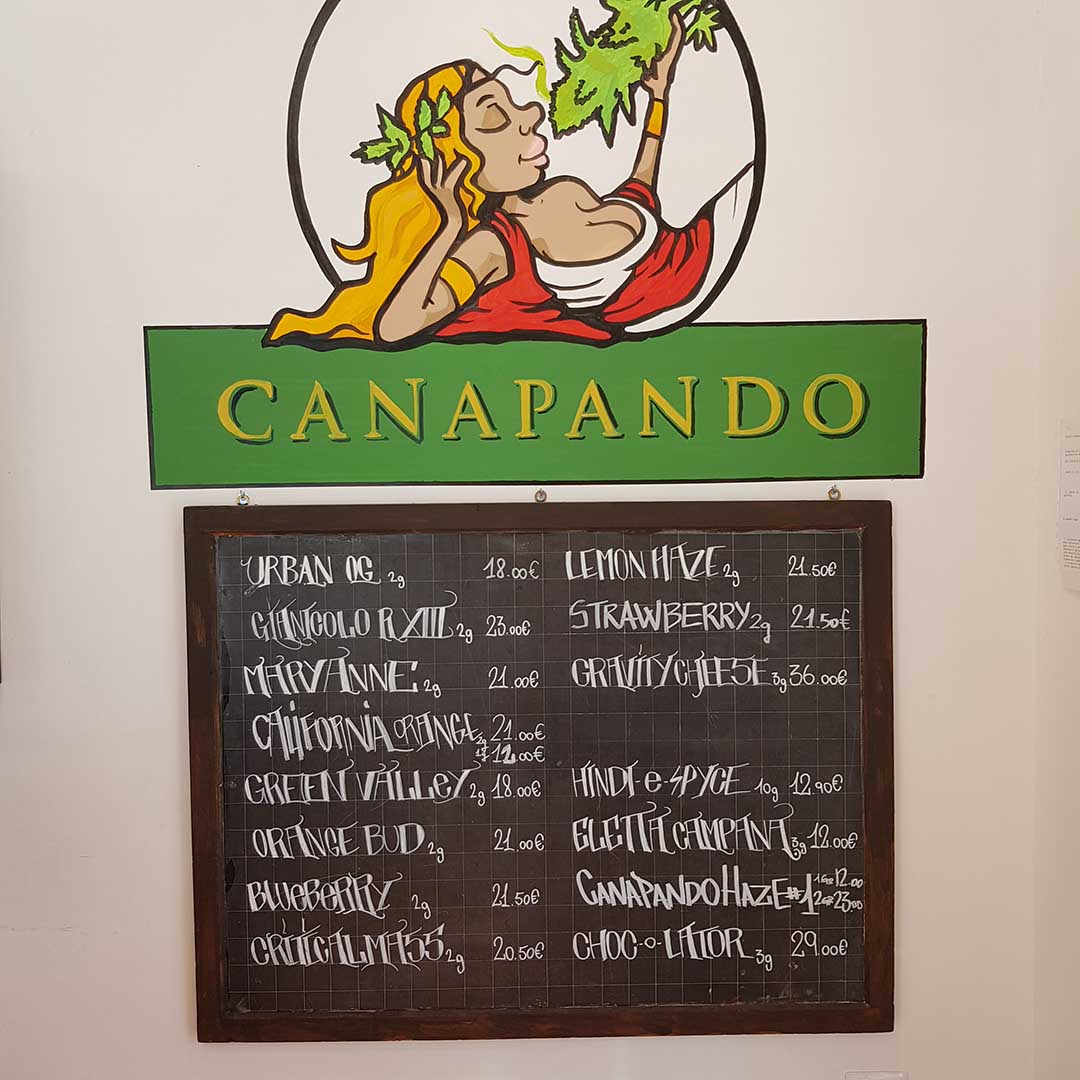 CANAPANDO
URBAN OG 2g 18.00€
GIANICOLO R XIII 2g 23.00€
MARYANNE 2g 21.00€
CALIFORNIA ORANGE 2g 21.00€
1g 12.00€
GREEN VALLEY 2g 18.00€
ORANGE BUD 2g 21,00€
BLUEBERRY 2g 21.50€
CRITICAL MASS 2g 20.50€
LEMON HAZE 2g 21.50€
STRAWBERRY 2g 21.50€
GRAVITY CHEESE 3g 36.00€
HINDI-e-SPYCE 10g 12.90€
ELETTA CAMPANA 3g 12.00€
CANAPANDO HAZE #1 1GR 12.00
2GR 23.00
CHOC-O-LATOR 3g 29.00€